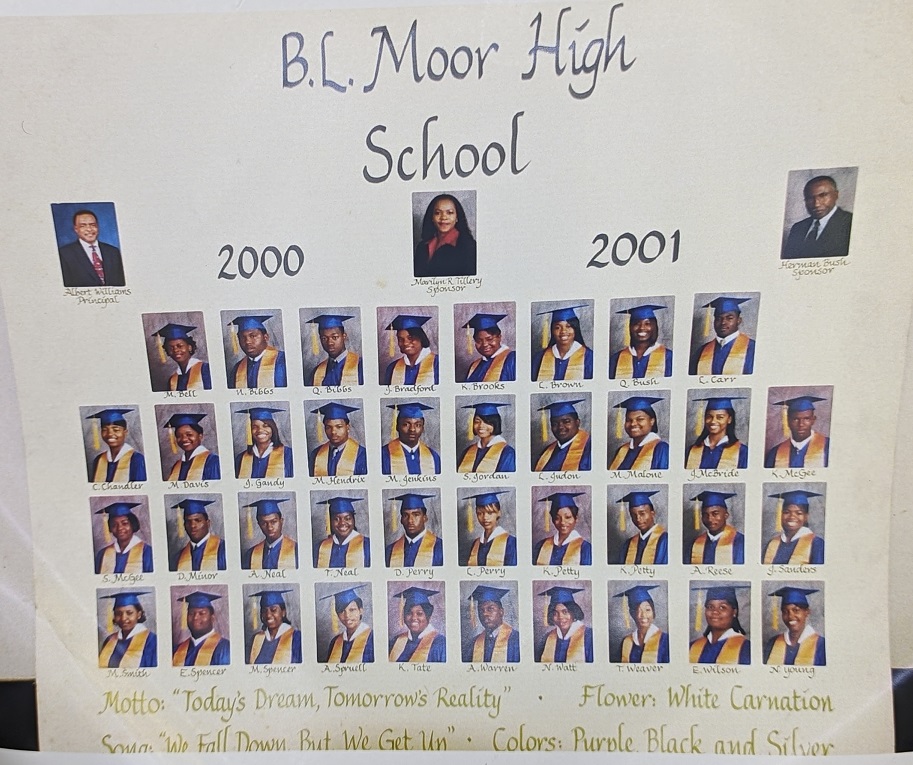 B.L. Moor High
School
2000
2001
Albert Williams
Principal
Marilyn R. Tillery
Sponsor
Herman Bush
Sponsor
M. Bell
Bibbs
Q. Bibbs
J. Bradford
K. Brooks
C. Brown
Q. Bush
C. Carr
C. Chandler
M. Davis
J. Gandy
M. Hendrix
M. Jenkins
S. Jordan
L. Judon
M. Malone
J. McBride
K. McGee
S. McGee
D. Minor
A. Neal
T. Neal
D. Perry
C. Perry
K. Petty
K. Petty
A. Reese
J. Sanders
M. Smith
E. Spencer
M. Spencer
A. Spruell
K. Tate
A. Warren
N. Watt
T. Weaver
E. Wilson
N. Young
Motto: "Today's Dream, Tomorrow's Reality" · Flower: White Carnation
Song: "We Fall Down, But We Get Up" · Colors: Purple, Black and Silver